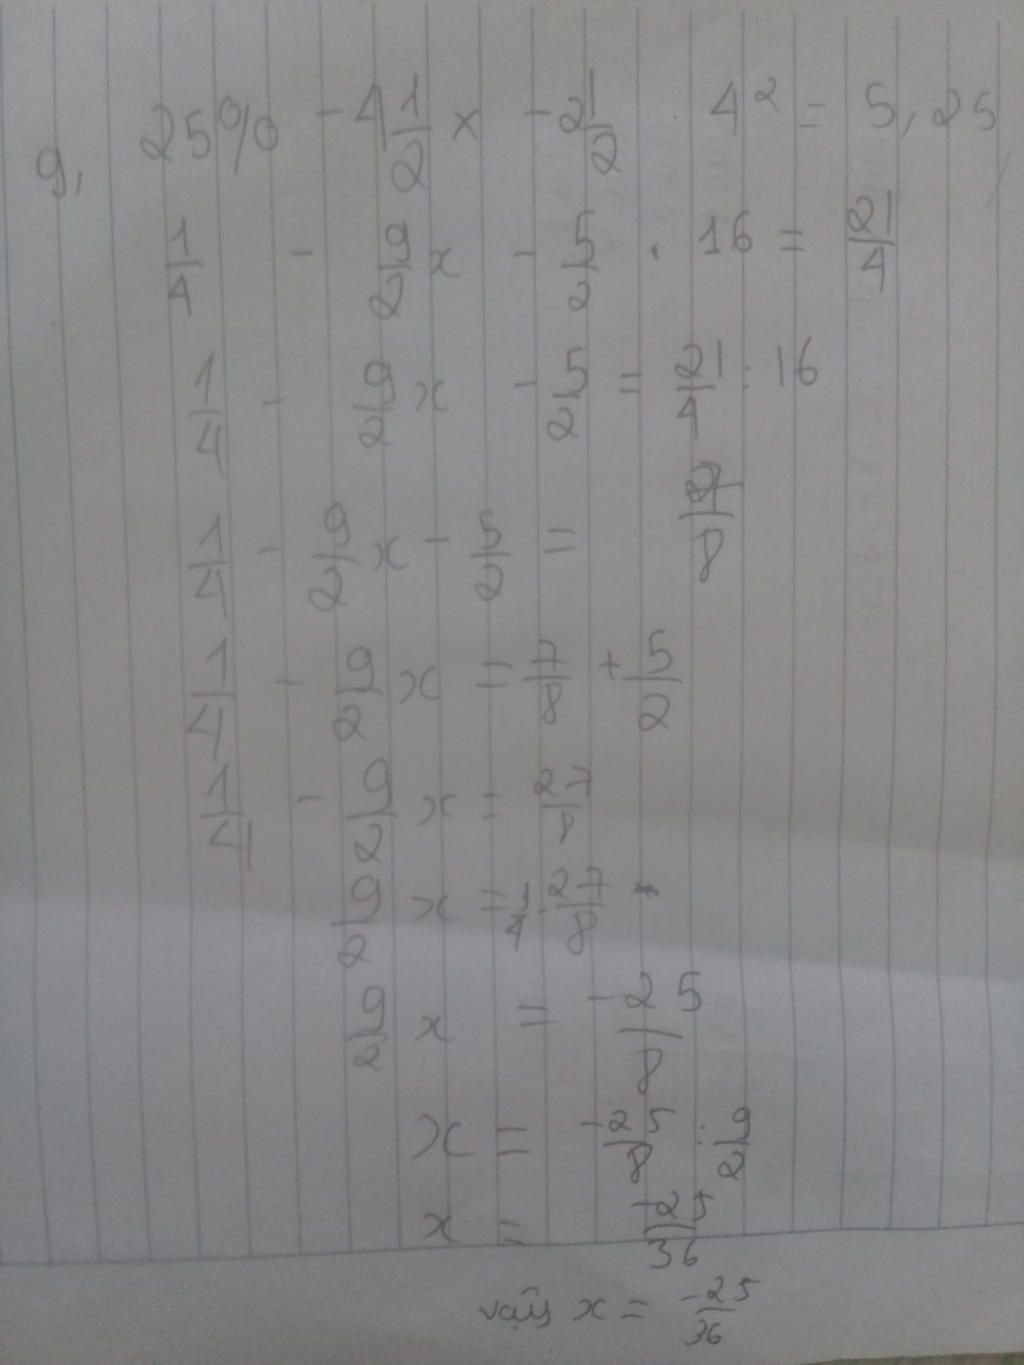 g, 25% - 4 1/2 x - 2 1/2 . 4² = 5,25
1/4 - 9/2 x - 5/2 . 16 = 21/4
1/4 - 9/2 x - 5/2 = 21/4 : 16
1/4 - 9/2 x - 5/2 = 7/8
1/4 - 9/2 x = 7/8 + 5/2
1/4 - 9/2 x = 27/8
9/2 x = 1/4 - 27/8
9/2 x = -25/8
x = -25/8 : 9/2
x = -25/36
vậy x = -25/36